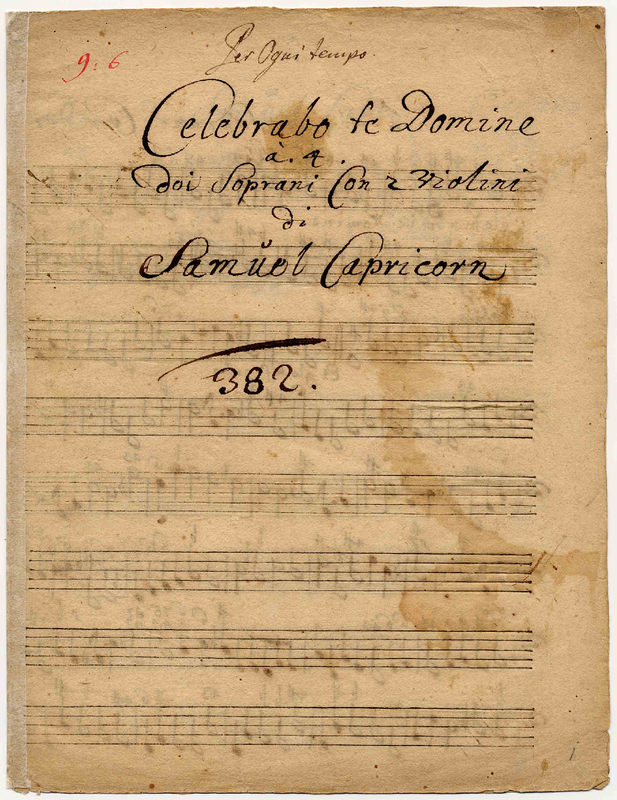 9: 6
Per Ogni tempo.
Celebrabo te Domine
à. 4.
doi Soprani Con 2 Violini
di
Samŭel Capricorn
382.
1